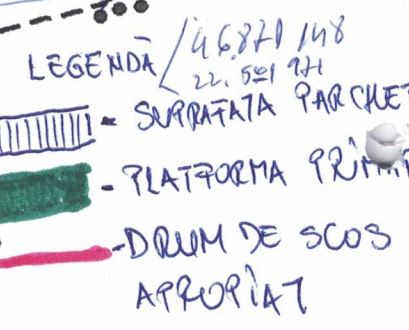 LEGENDĂ
46.870 148
22.501 971
- SUPRAFAȚA PARCHET
- PLATFORMA PRIMA
- DRUM DE SCOS
APROPIAT